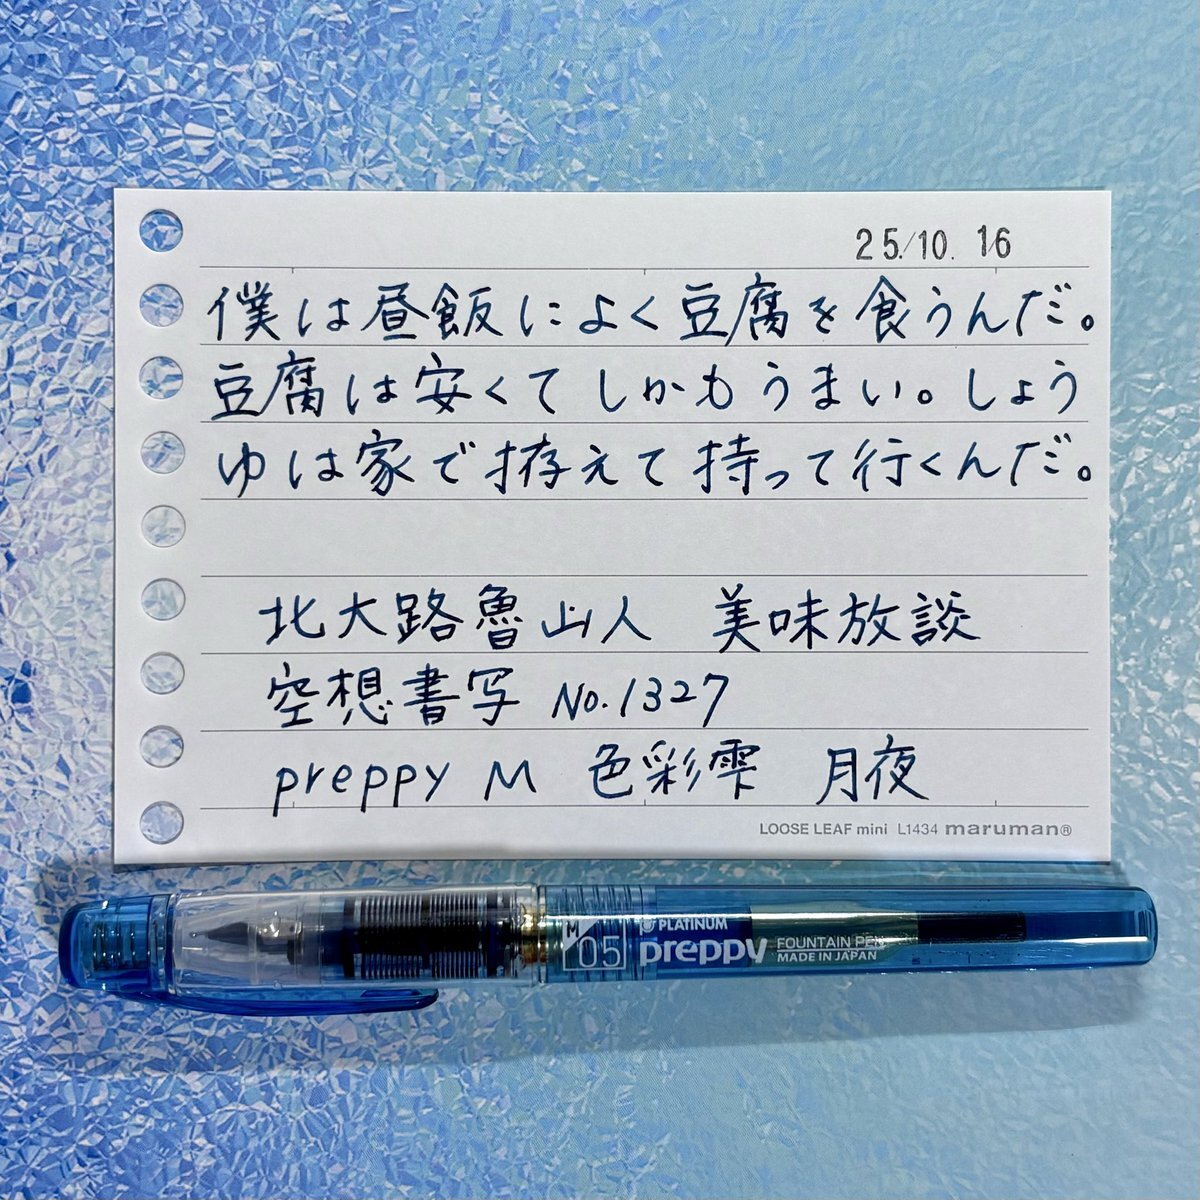 25.10.16
僕は昼飯によく豆腐を食うんだ。
豆腐は安くてしかもうまい。しょう
ゆは家で拵えて持って行くんだ。
北大路魯山人 美味放談
空想書写 No.1327
preppy M 色彩雫 月夜
LOOSE LEAF mini L1434 maruman®
M 05 PLATINUM preppy FOUNTAIN PEN
MADE IN JAPAN